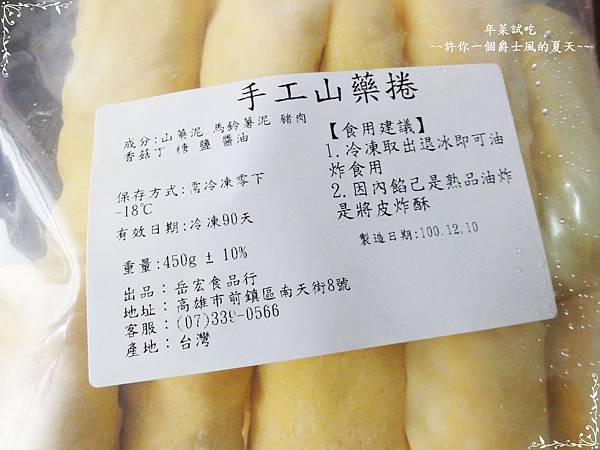 年菜試吃
~~許你一個爵士風的夏天~~
手工山藥捲
成分:山藥泥 馬鈴薯泥 豬肉
香菇丁 糖 鹽 醬油
保存方式:需冷凍零下
-18℃
有效日期:冷凍90天
重量:450g ± 10%
出品:岳宏食品行
地址:高雄市前鎮區南天街8號
客服:(07)339-0566
產地:台灣
【食用建議】
1.冷凍取出退冰即可油
炸食用
2.因內餡己是熟品油炸
是將皮炸酥
製造日期:100.12.10